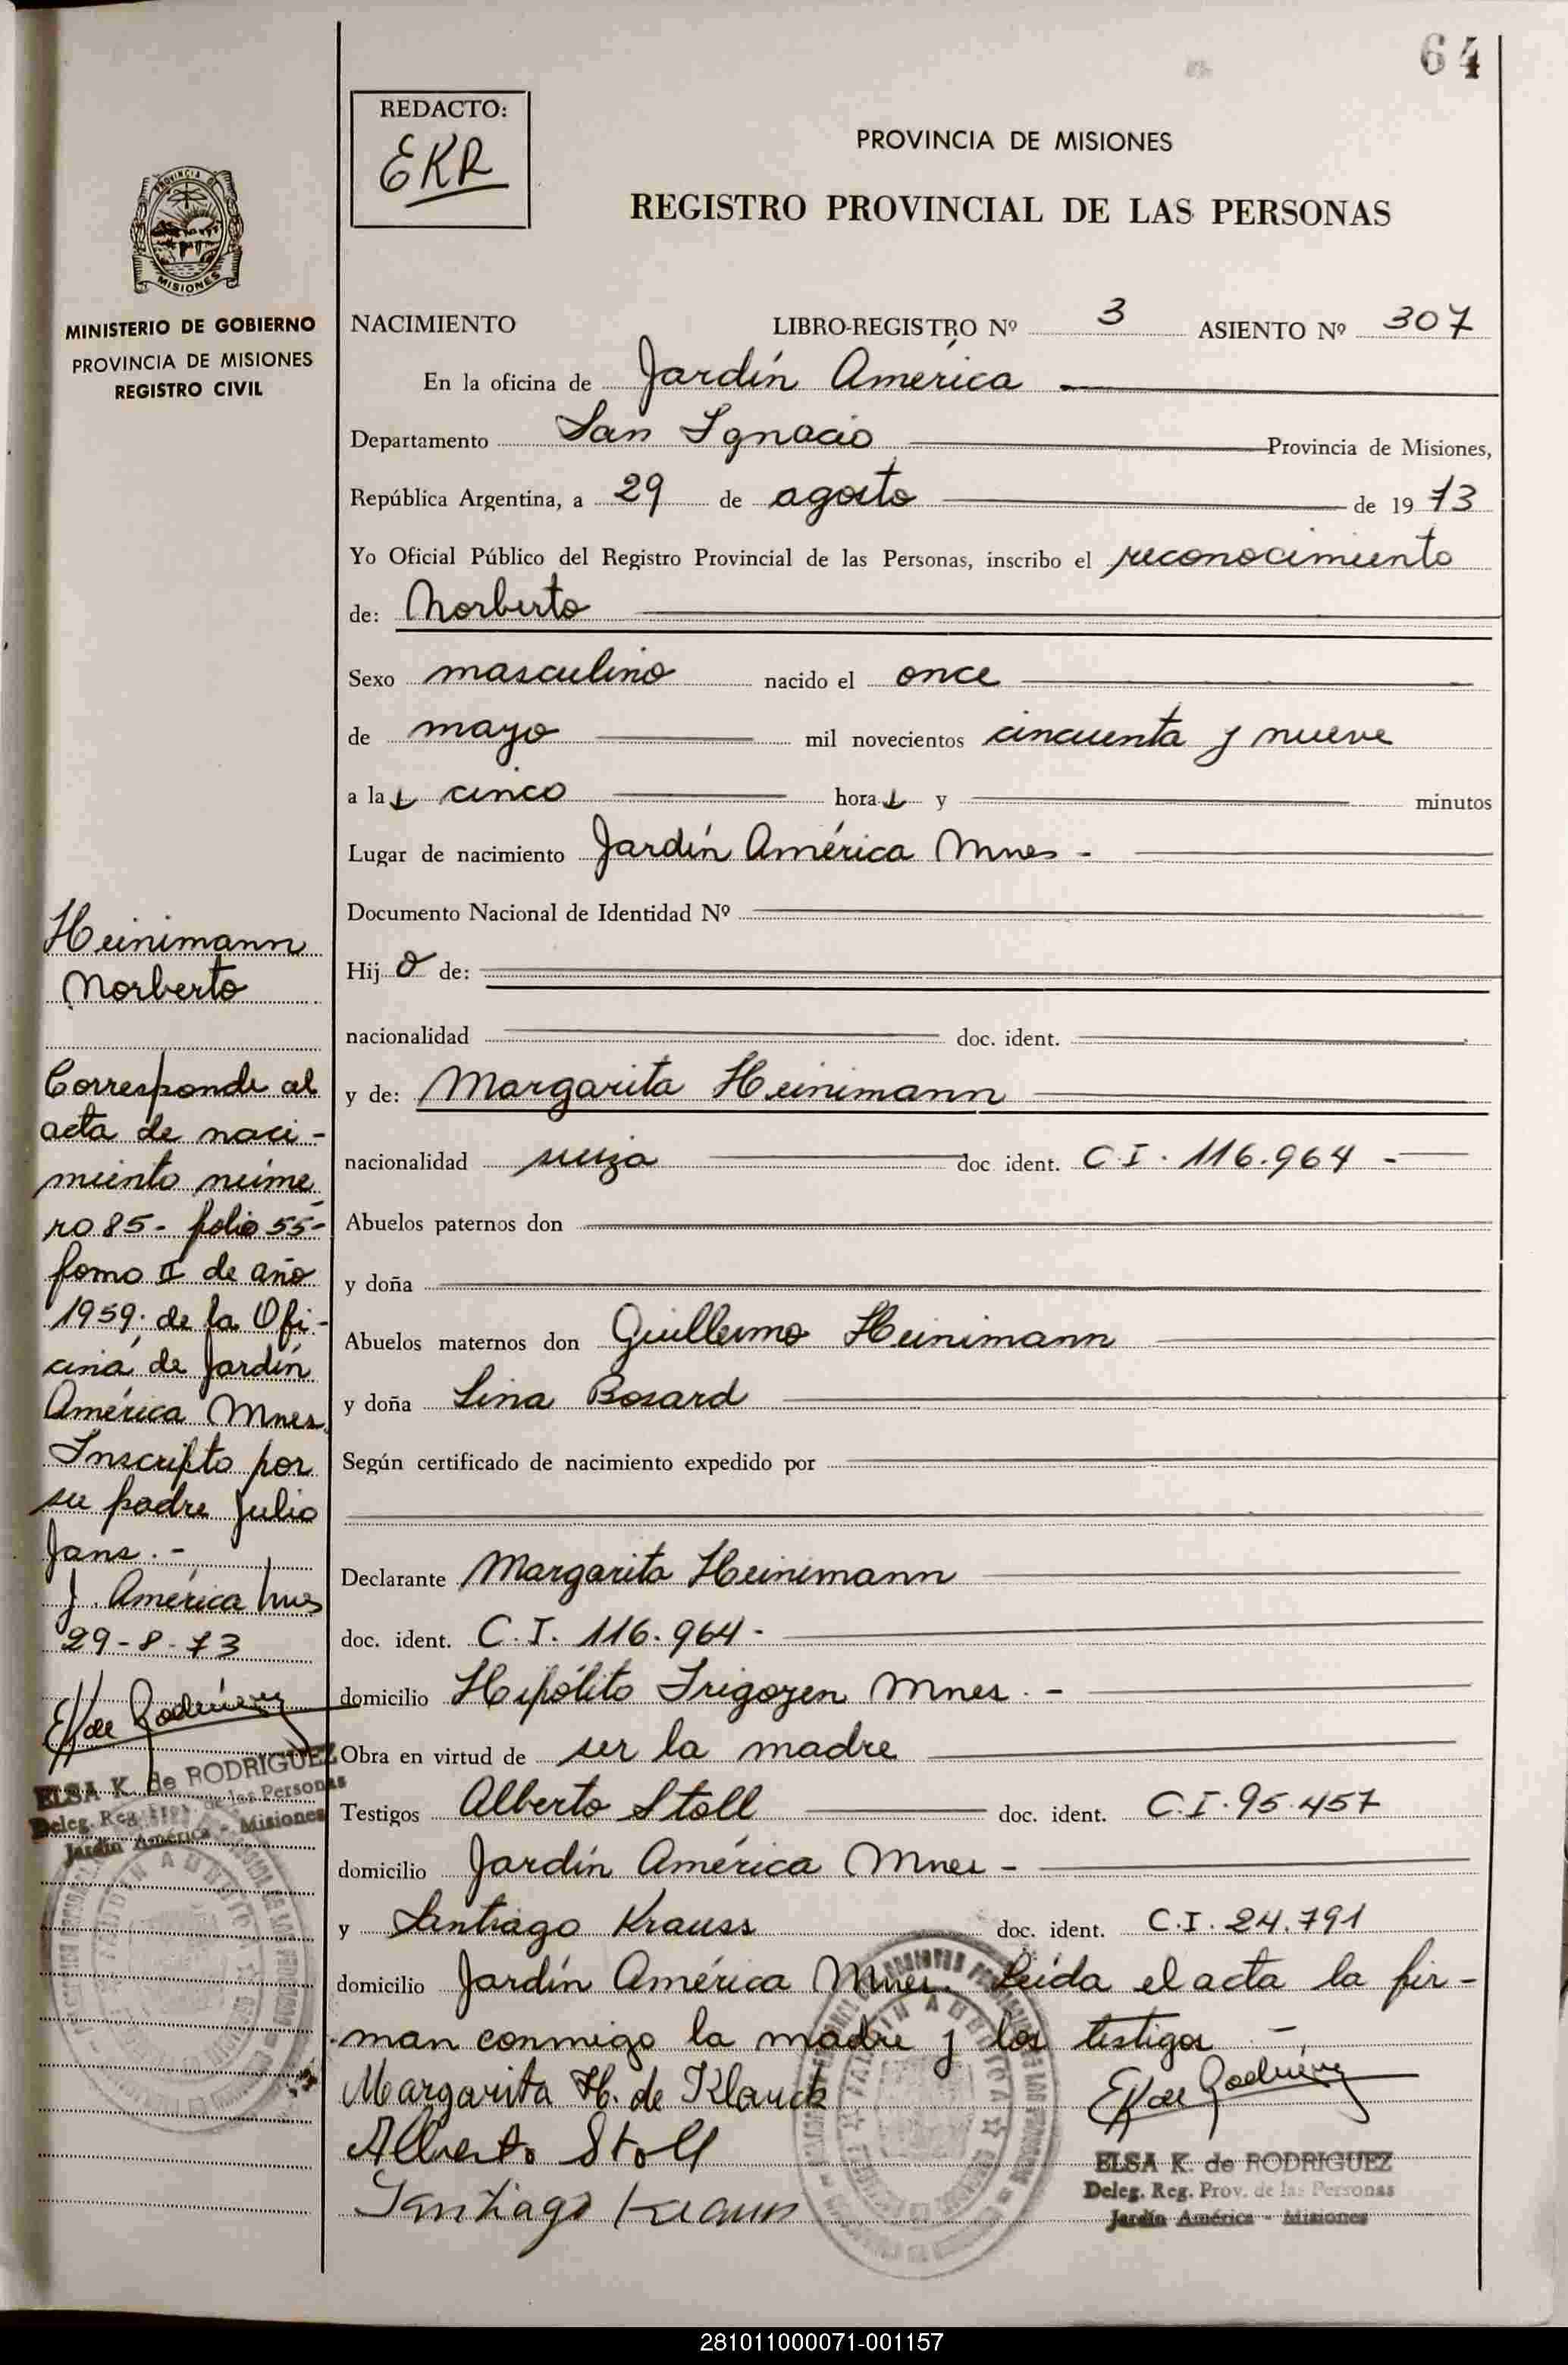 64
REDACTO:
EKR
PROVINCIA DE MISIONES
REGISTRO PROVINCIAL DE LAS PERSONAS
MISIONES
MINISTERIO DE GOBIERNO
PROVINCIA DE MISIONES
REGISTRO CIVIL
NACIMIENTO LIBRO-REGISTRO Nº 3 ASIENTO Nº 307
En la oficina de Jardín América
Departamento San Ignacio Provincia de Misiones,
República Argentina, a 29 de agosto de 19 73
Yo Oficial Público del Registro Provincial de las Personas, inscribo el reconocimiento
de: Norberto
Sexo masculino nacido el once
de mayo mil novecientos cincuenta y nueve
a las cinco horas y minutos
Lugar de nacimiento Jardín América Mnes -
Documento Nacional de Identidad Nº
Hijo de:
nacionalidad doc. ident.
y de: Margarita Heinimann
nacionalidad suiza doc ident. C I. 116.964 -
Abuelos paternos don
y doña
Abuelos maternos don Guillermo Heinimann
y doña Lina Bosard
Según certificado de nacimiento expedido por
Declarante Margarita Heinimann
doc. ident. C.I. 116.964-
domicilio Hipólito Irigoyen Mnes. -
Obra en virtud de ser la madre
Testigos Alberto Stoll doc. ident. C.I. 95.457
domicilio Jardín América Mnes -
y Santiago Krauss doc. ident. C.I. 24.791
domicilio Jardín América Mnes. Leída el acta la fir-
man conmigo la madre y los testigos -
Margarita H. de Klauck
Alberto Stoll
Santiago Krauss
EK de Rodríguez
ELSA K. de RODRIGUEZ
Deleg. Reg. Prov. de las Personas
Jardín América - Misiones
Heinimann
Norberto
Corresponde al
acta de naci-
miento núme
ro 85- folio 55-
tomo II de año
1959; de la Ofi-
cina de Jardín
América Mnes.
Inscripto por
su padre Julio
Jans. -
J. América Mnes
29-8-73
EK de Rodríguez
ELSA K. de RODRIGUEZ
Deleg. Reg. Prov. de las Personas
Jardín América - Misiones
281011000071-001157